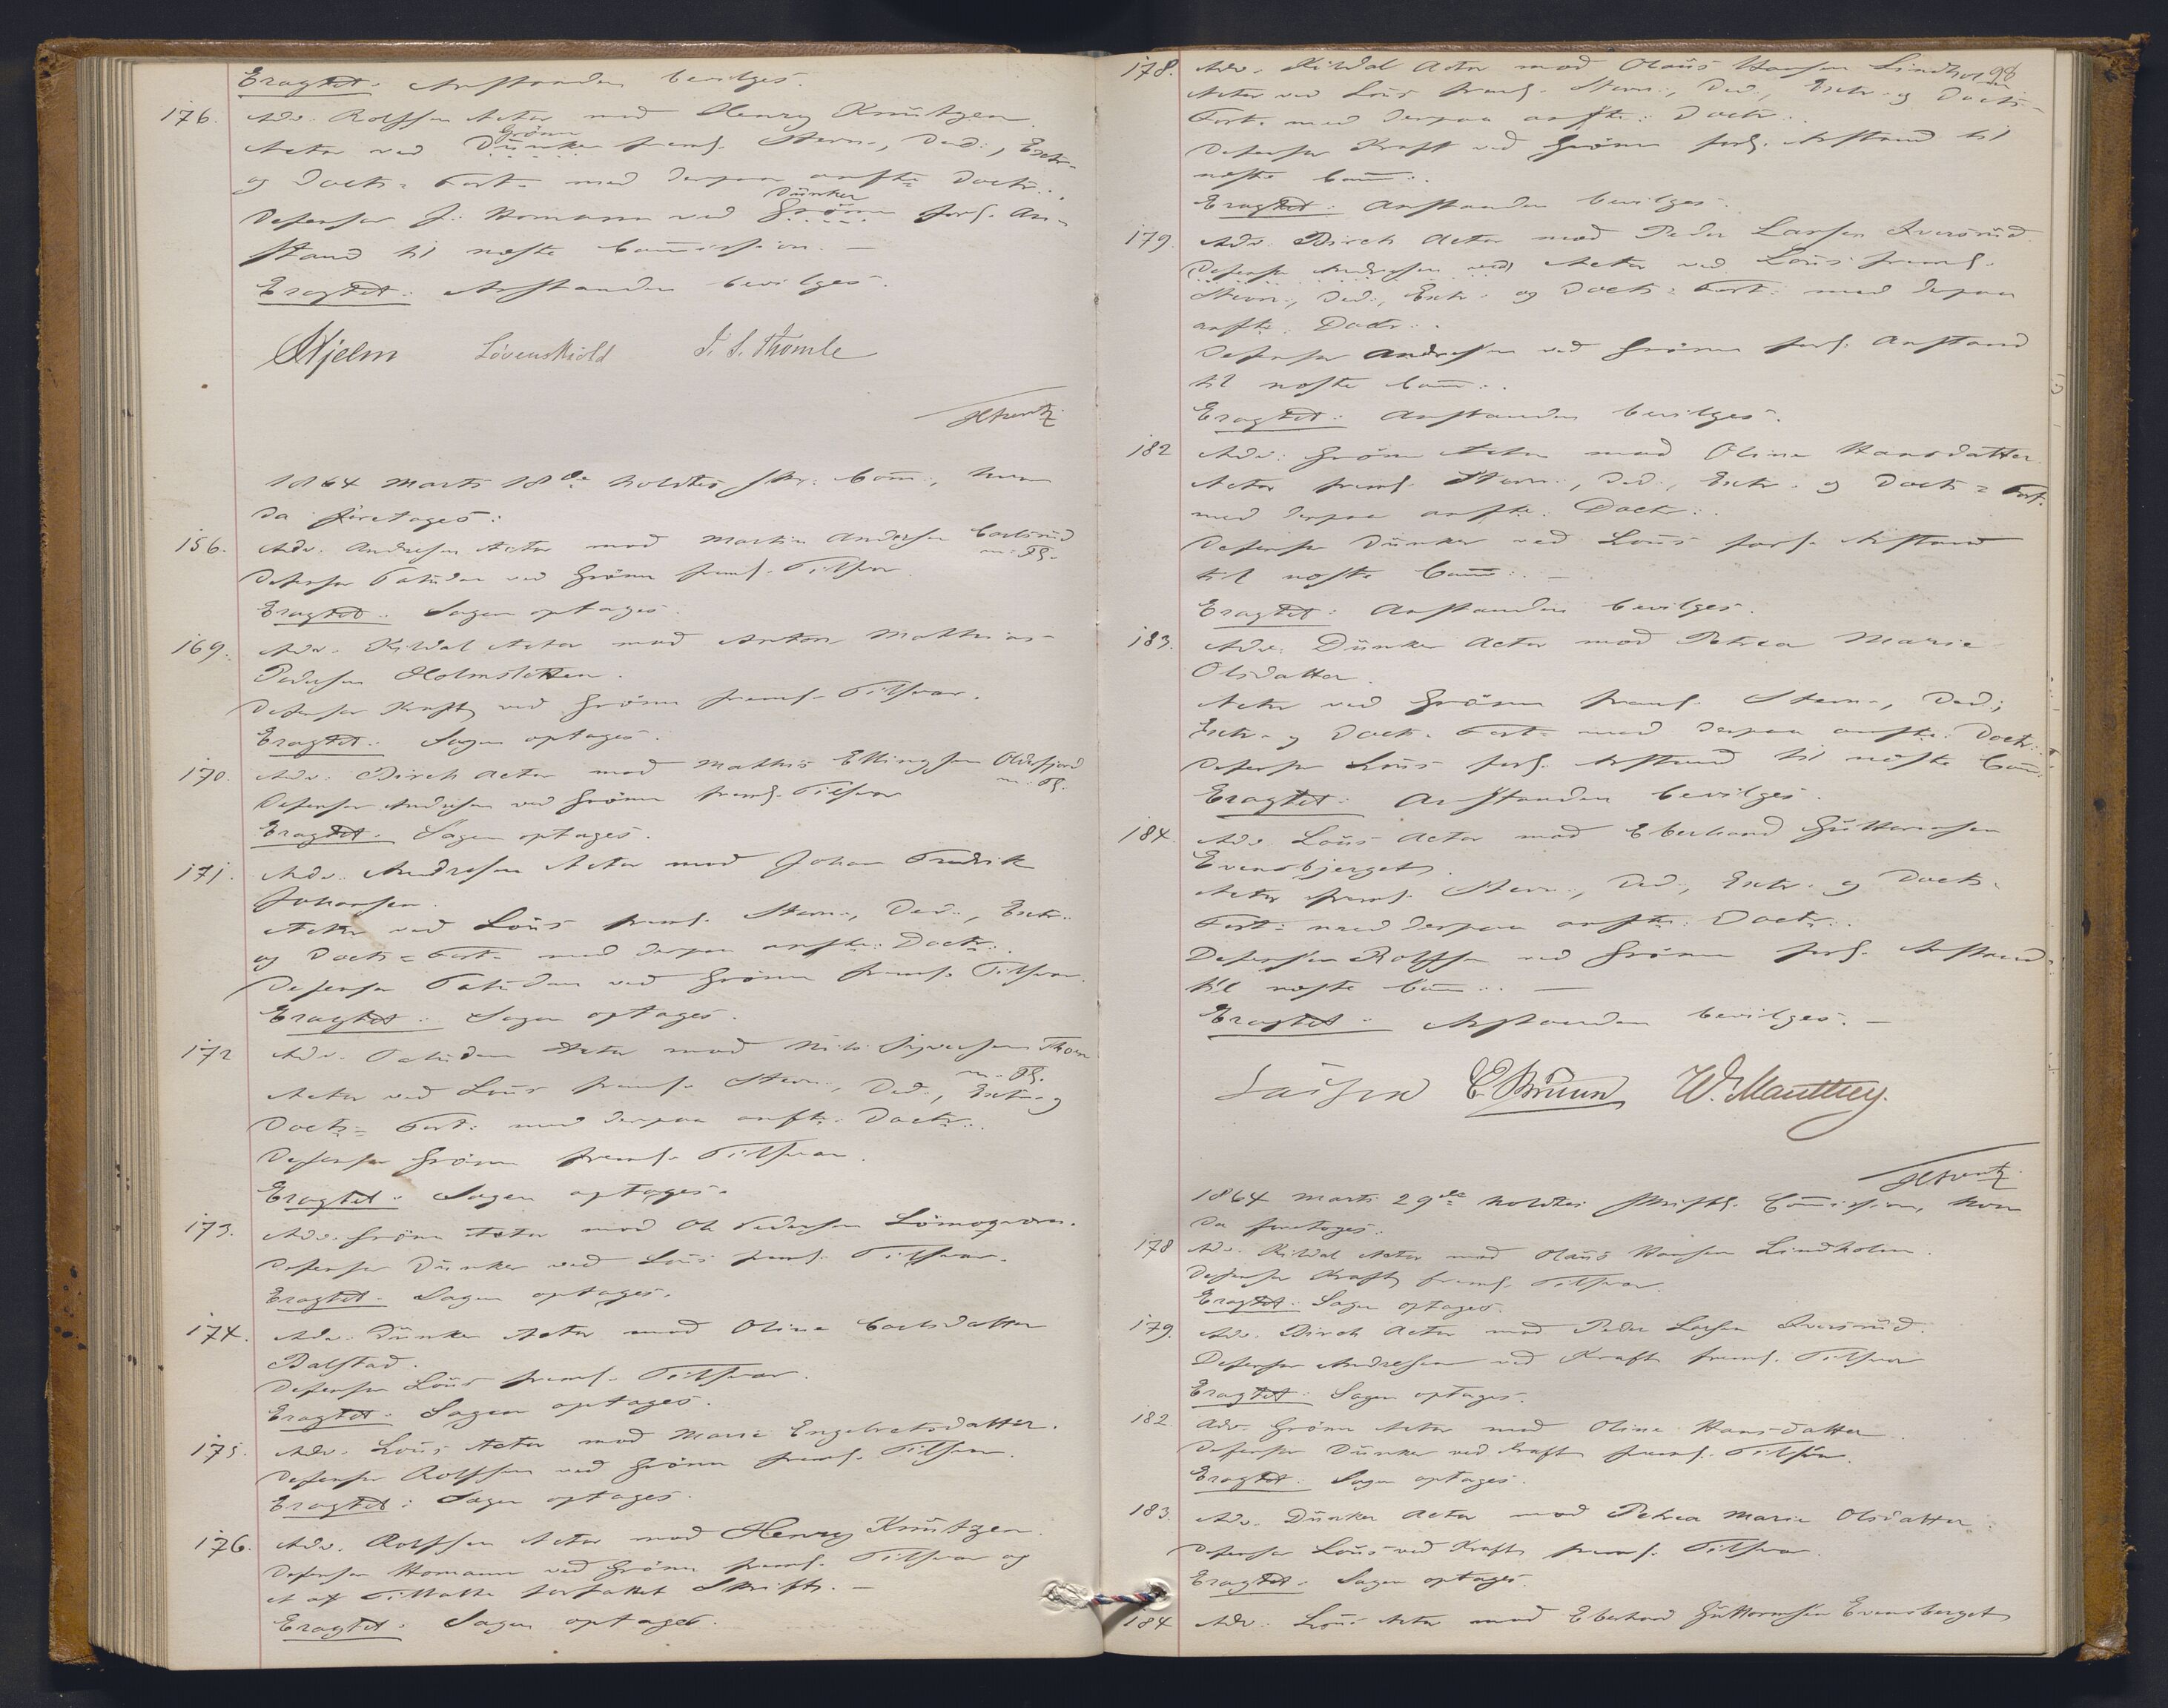 Eragtet: Anstanden bevilges.
176. Adv. Rolfsen Actor mod Henry Knutzen
Actor ved Dunker Grönn freml. Stevn., Ded., Extr.
og Doctr= Fort. med derpaa anfte Doctr:.
Defensor J. Homann ved Grönn Dunker forl. An-
stand til næste Commission. —
Eragtet: Anstanden bevilges.
Hjelm Lövenskiold J. S. Thomle
1864 Marts 18de holdtes skr. Comm:, hvor
da foretages:
156. Adv. Andresen Actor mod Martin Andersen Carlsrud
m. Fl.
Defensor Faludan ved Grönn freml. Tilsvar.
Eragtet: Sagen optages.
169. Adv. Kildal Actor mod Anton Mathias
Pedersen Holmsletten.
Defensor Kraft ved Grönn freml. Tilsvar.
Eragtet: Sagen optages.
170. Adv. Birch Actor mod Mathis Ellingsen Oldefjord
m. Fl.
Defensor Andresen ved Grönn freml. Tilsvar
Eragtet: Sagen optages.
171. Adv. Andresen Actor mod Johan Fredrik
Johansen.
Actor ved Lous freml. Stevn., Ded., Extr.
og Doctr= Fort. med derpaa anfte: Doctr:.
Defensor Faludan ved Grönn freml. Tilsvar.
Eragtet: Sagen optages.
172 Adv. Faludan Actor mod Nils Syversen Thoen
m. Fl.
Actor ved Lous freml. Stevn., Ded., Extr. og
Doctr= Fort: med derpaa anfte: Doctr:.
Defensor Grönn freml. Tilsvar.
Eragtet: Sagen optages.
173. Adv. Grönn Actor mod Ole Pedersen
Defensor Dunker ved Lous freml. Tilsvar.
Eragtet. Sagen optages.
174. Adv. Dunker Actor mod Oline Carlsdatter
Balstad.
Defensor Lous freml. Tilsvar.
Eragtet: Sagen optages.
175. Adv. Lous Actor mod Marie Engebretsdatter.
Defensor Rolfsen ved Grönn freml. Tilsvar.
Eragtet: Sagen optages.
176. Adv. Rolfsen Actor mod Henry Knutzen.
Defensor Homann ved Grönn freml. Tilsvar og
et af Tiltalte forfattet Skrift. —
Eragtet: Sagen optages.
98
178. Adv. Kildal Actor mod Olaus Hansen Lindholm
Actor ved Lous freml. Stevn., Ded., Extr. og Doctr-
Fort. med derpaa anfte: Doctr:.
Defensor Kraft ved Grönn forl. Anstand til
næste Comm:.
Eragtet: Anstanden bevilges.
179. Adv. Birch Actor mod Peder Larsen Iversrud
Defensor Andresen ved Actor ved Lous freml.
Stevn., Ded., Extr. og Doctr= Fort: med derpaa
anfte. Doctr:.
Defensor Andresen ved Grönn forl. Anstand
til næste Comm:.
Eragtet: Anstanden bevilges.
182 Adv: Grönn Actor mod Oline Hansdatter.
Actor freml. Stevn., Ded., Extr. og Doctr= Fort.
med derpaa anfte. Doctr:.
Defensor Dunker ved Lous forl. Anstand
til næste Comm:. —
Eragtet: Anstanden bevilges.
183. Adv. Dunker Actor mod Petrea Marie
Olsdatter.
Actor ved Grönn freml. Stevn., Ded.,
Extr. og Doctr. Fort. med derpaa anfte: Doctr:.
Defensor Lous forl. Anstand til næste Comm:
Eragtet: Anstanden bevilges.
184. Adv. Lous Actor mod Eberhard Guttormsen
Evensbjerget.
Actor freml. Stevn., Ded., Extr. og Doctr-
Fort: med derpaa anfte: Doctr:.
Defensor Rolfsen ved Grönn forl. Anstand
til næste Comm:. —
Eragtet: Anstanden bevilges. —
E. Bruun W. Manthey.
1864 Marts 29de holdtes skriftl. Commission, hvor
da foretoges:
178 Adv. Kildal Actor mod Olaus Hansen Lindholm.
Defensor Kraft freml. Tilsvar.
Eragtet: Sagen optages.
179. Adv. Birch Actor mod Peder Larsen Iversrud.
Defensor Andresen ved Kraft freml. Tilsvar
Eragtet: Sagen optages.
182. Adv. Grönn Actor mod Oline Hansdatter.
Defensor Dunker ved Kraft freml. Tilsvar.
Eragtet: Sagen optages.
183. Adv. Dunker Actor mod Petrea Marie Olsdatter.
Defensor Lous ved Kraft freml. Tilsvar.
Eragtet: Sagen optages.
184 Adv. Lous Actor mod Eberhard Guttormsen Evensberget